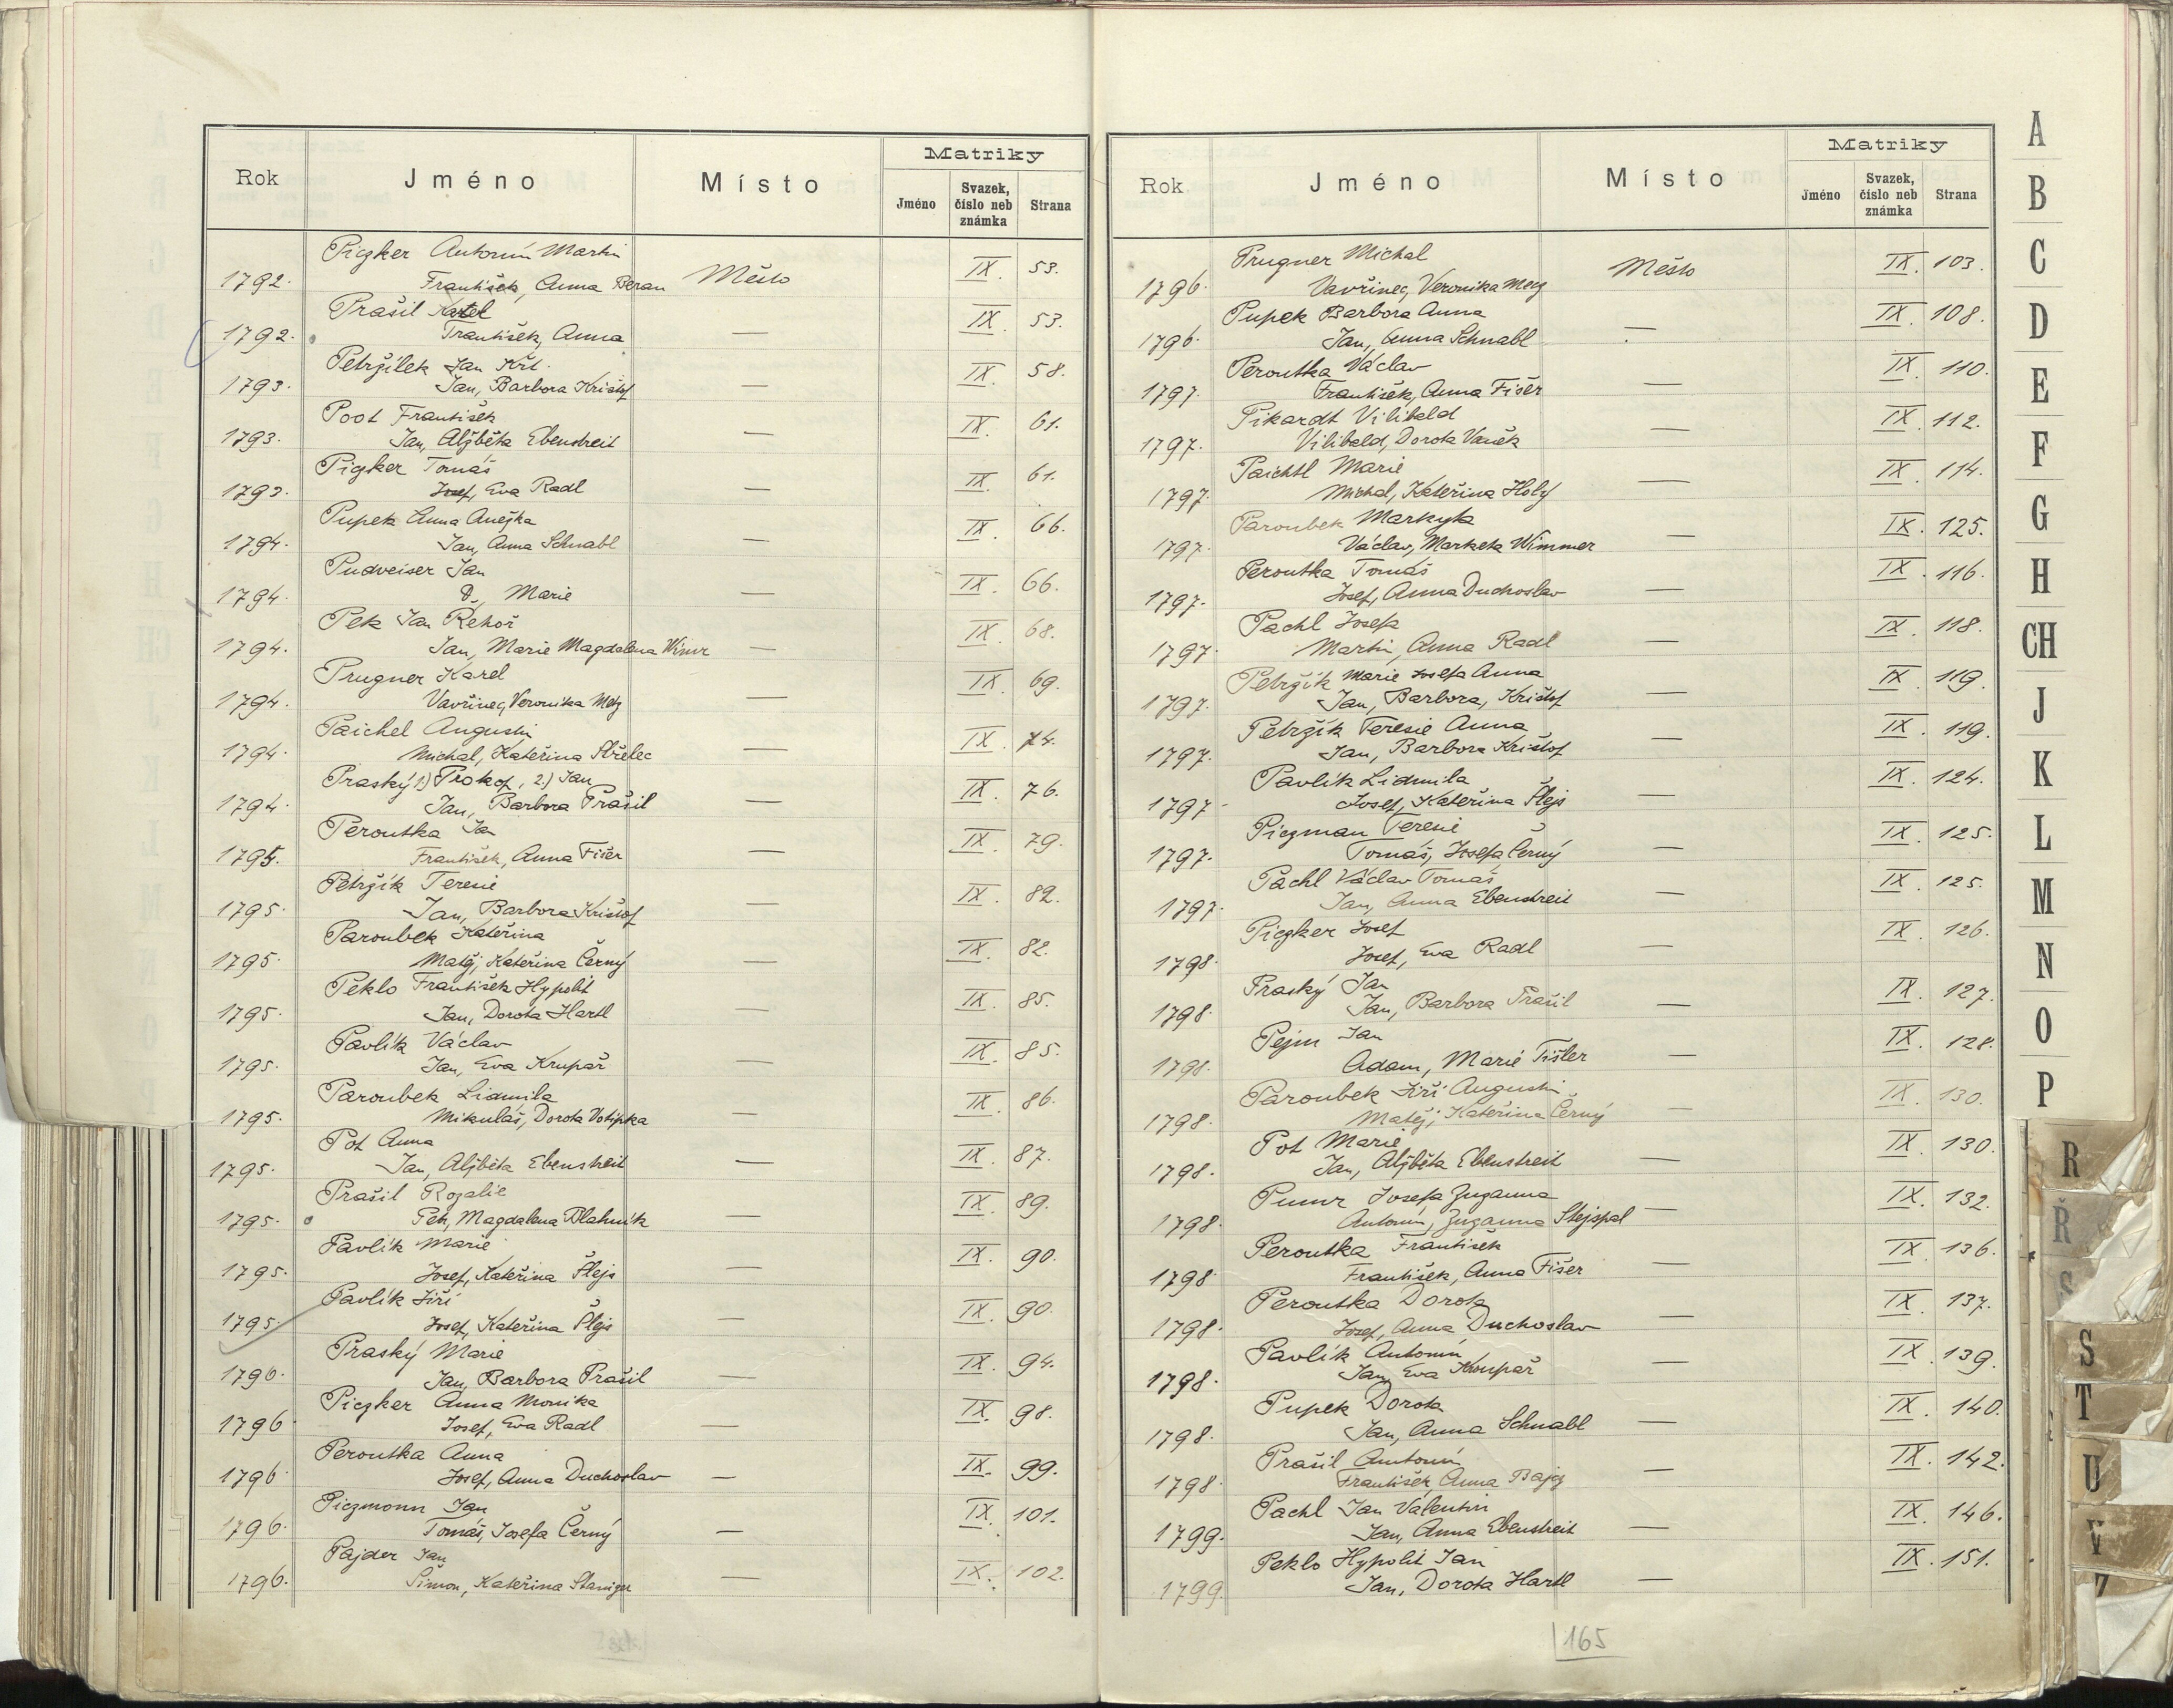 Matriky
Rok Jméno Místo Jméno Svazek, číslo neb známka Strana
Piczker Antonín Martin
1792. František, Anna Beran Město IX. 53.
Prašil Karel
1792. František, Anna — IX. 53.
Petržilek Jan Křt.
1793. Jan, Barbora Krištof — IX. 58.
Poot František
1793. Jan, Alžběta Ebenstreit — IX. 61.
Pigker Tomáš
1793. Josef, Eva Radl — IX. 61.
Pupek Anna Anežka
1794. Jan, Anna Schnabl — IX. 66.
Pudveiser Jan
1794. D., Marie — IX. 66.
Pek Jan Řehoř
1794. Jan, Marie Magdalena Wimr — IX. 68.
Prugner Karel
1794. Vavřinec, Veronika Metz — IX. 69.
Paichel Augustin
1794. Michal, Kateřina Střelec — IX. 74.
Praský 1.) Prokof, 2.) Jan
1794. Jan, Barbora Prašil — IX. 76.
Peroutka Jan
1795. František, Anna Fišer — IX. 79.
Petržík Teresie
1795. Jan, Barbora Krištof — IX. 82.
Paroubek Kateřina
1795. Matěj, Kateřina Černý — IX. 82.
Peklo František Hypolit
1795. Jan, Dorota Hartl — IX. 85.
Pavlík Václav
1795. Jan, Eva Krupař — IX. 85.
Paroubek Lidmila
1795. Mikuláš, Dorota Votipka — IX. 86.
Pot Anna
1795. Jan, Alžběta Ebenstreit — IX. 87.
Prašil Rozalie
1795. Petr, Magdalena Blahník — IX. 89.
Pavlík Marie
1795. Josef, Kateřina Šlejs — IX. 90.
Pavlík Jiří
1795. Josef, Kateřina Šlejs — IX. 90.
Praský Marie
1796. Jan, Barbora Prašil — IX. 94.
Piczker Anna Monika
1796 Josef, Eva Radl — IX. 98.
Peroutka Anna
1796 Josef, Anna Duchoslav — IX. 99.
Piczmonn Jan
1796. Tomáš, Josefa Černý — IX. 101.
Pajder Jan
1796. Šimon, Kateřina — IX. 102.
Matriky
Rok Jméno Místo Jméno Svazek, číslo neb známka Strana
Prugner Michal
1796. Vavřinec, Veronika Metz Město IX. 103.
Pupek Barbora Anna
1796. Jan, Anna Schnabl — IX. 108.
Peroutka Václav
1797. František, Anna Fišer — IX. 110.
Pikardt Vilibald
1797. Vilibald, Dorota Vaněk — IX. 112.
Paichtl Marie
1797. Michal, Kateřina Holý — IX. 114.
Paroubek Markyta
1797. Václav, Marketa Wimmer — IX. 125.
Peroutka Tomáš
1797. Josef, Anna Duchoslav — IX. 116.
Pachl Josefa
1797. Martin, Anna Radl — IX. 118.
Petržík Marie Josefa Anna
1797. Jan, Barbora, Krištof — IX. 119.
Petržík Teresie Anna
1797. Jan, Barbora Krištof — IX. 119.
Pavlík Lidmila
1797. Josef, Kateřina Šlejs — IX. 124.
Piczman Teresie
1797. Tomáš, Josefa Černý — IX. 125.
Pachl Václav Tomáš
1797. Jan, Anna Ebenstreit — IX. 125.
Piczker Josef
1798. Josef, Eva Radl — IX. 126.
Praský Jan
1798. Jan, Barbora Prašil — IX. 127.
Pejm Jan
1798. Adam, Marie Fišler — IX. 128.
Paroubek Jiří Augustin
1798. Matěj, Kateřina Černý — IX. 130.
Pot Marie
1798. Jan, Alžběta Ebenstreit — IX. 130.
Pumr Josefa Zuzanna
1798. Antonín, Zuzanna Stejspal — IX. 132.
Peroutka František
1798. František, Anna Fišer — IX. 136.
Peroutka Dorota
1798. Josef, Anna Duchoslav — IX. 137.
Pavlík Antonín
1798. Jan, Eva Kroupař — IX. 139.
Pupek Dorota
1798. Jan, Anna Schnabl — IX. 140.
Prašil Antonín
1798. František, Anna — IX. 142.
Pachl Jan Valentin
1799. Jan, Anna Ebenstreit — IX. 146.
Peklo Hypolit Jan
1799. Jan, Dorota Hartl — IX. 151.
165
A
B
C
D
E
F
G
H
CH
J
K
L
M
N
O
P
R
Ř
S
S
T
U
V